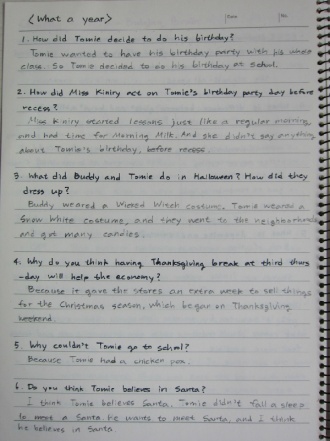 <What a year>
1. How did Tomie decide to do his birthday?
Tomie wanted to have his birthday party with his whole
class. So Tomie decided to do his birthday at school.
2. How did Miss Kiniry act on Tomie's birthday party day before
recess?
Miss Kiniry started lessons just like a regular morning
and had time for Morning Milk. And she didn't say anything
about Tomie's birthday, before recess.
3. What did Buddy and Tomie do in Halloween? How did they
dress up?
Buddy weared a Wicked Witch costume, Tomie weared a
Snow White costume, and they went to the neighborhoods
and got many candies.
4. Why do you think having Thanksgiving break at third thurs
-day will help the economy?
Because it gave the stores an extra week to sell things
for the Christmas season, which began on Thanksgiving
weekend.
5. Why couldn't Tomie go to school?
Because Tomie had a chicken pox.
6. Do you think Tomie believes in Santa?
I think Tomie believes Santa. Tomie didn't fall a sleep
to meet a Santa. He wants to meet Santa, and I think
he believes in Santa.